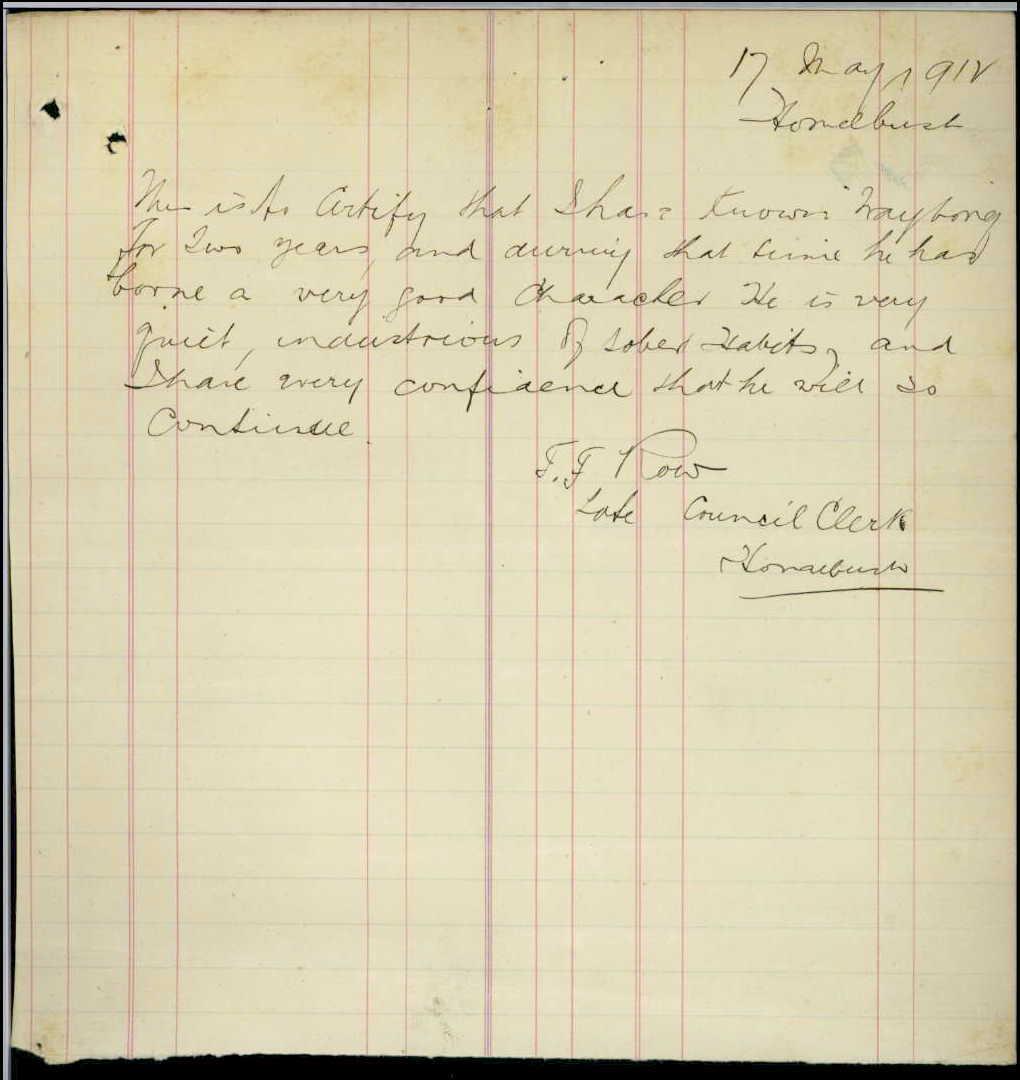 17 May 1912
Homebush
This is to Certify that I have known Waybong
for Two years, and durring that time he has
borne a very good Character He is very
quiet, industrious of sober Habits, and
I have every confidence that he will so
Continue.
F. F Row
Late Council Clerk
Homebush